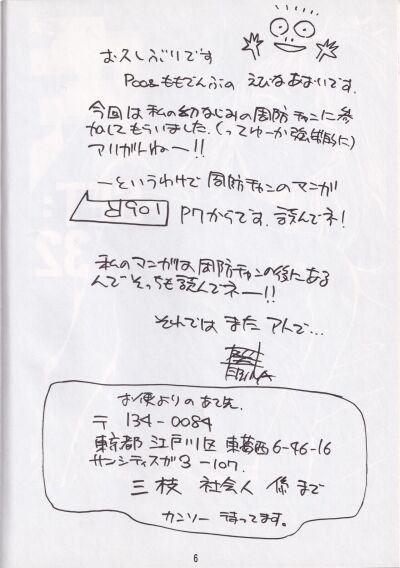 お久しぶりです
Poo&ももでんぶの えびなあおいです。
今回は私の幼なじみの周防チャンに参
加してもらいました。(ってゆーか強制的に)
アリガトねー!!
ーというわけで 周防チャンのマンガ
P7からです。読んでネ!
私のマンガは周防チャンの後にある
んでそっちも読んでネー!!
それでは また アトで…
EBINA
お便よりのあて先。
〒 134-0084
東京都 江戸川区 東葛西 6-46-16
サンシティスガ3 -107.
三枝 社会人 係まで
カンソー 待ってます。
6